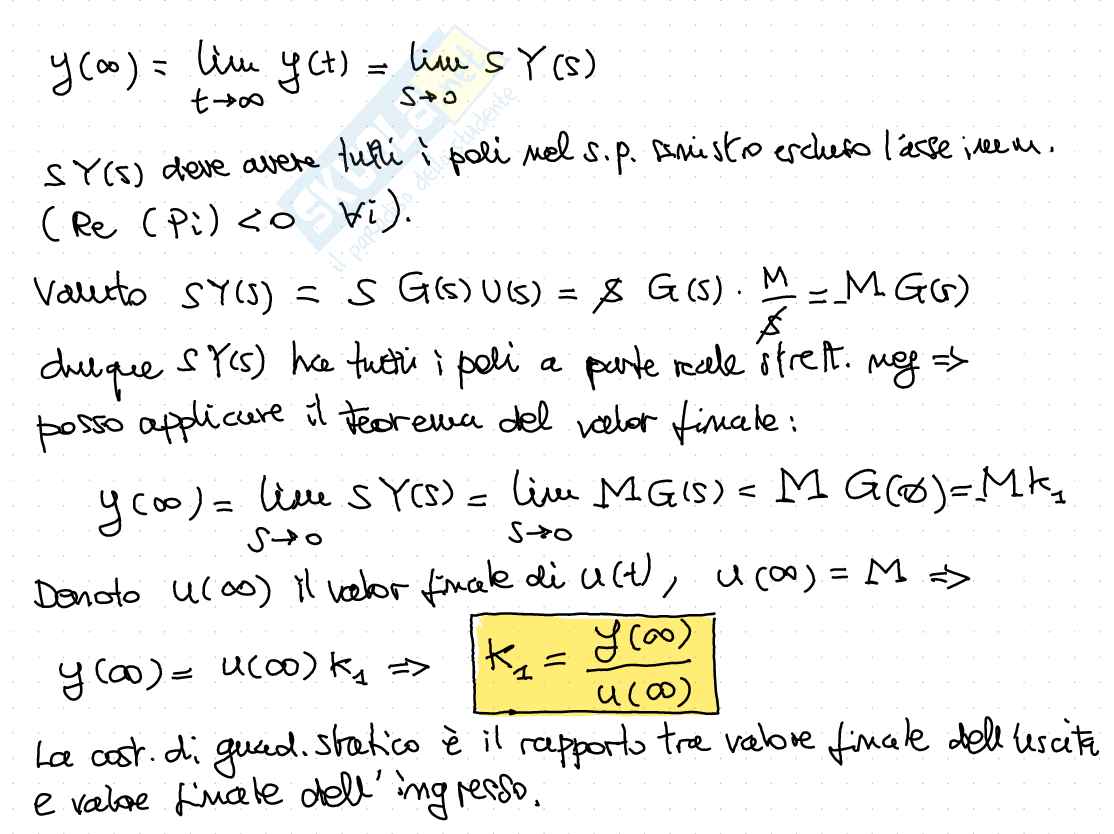 y(∞) = lim y(t) = lim s Y(s)
t→∞ s→0
s Y(s) deve avere tutti i poli nel s.p. sinistro escluso l'asse imm.
(Re (Pi) < 0 ∀i).
Valuto sY(s) = s G(s) U(s) = s G(s) · M/s = M G(s)
dunque s Y(s) ha tutti i poli a parte reale strett. neg ⇒
posso applicare il teorema del valor finale:
y(∞) = lim s Y(s) = lim M G(s) = M G(0) = M k₁
s→0 s→0
Denoto u(∞) il valor finale di u(t), u(∞) = M ⇒
y(∞) = u(∞) k₁ ⇒ k₁ = y(∞)/u(∞)
La cost. di guad. statico è il rapporto tra valore finale dell'uscita
e valore finale dell'ingresso.
SKUOLA.net
il paradiso dello studente